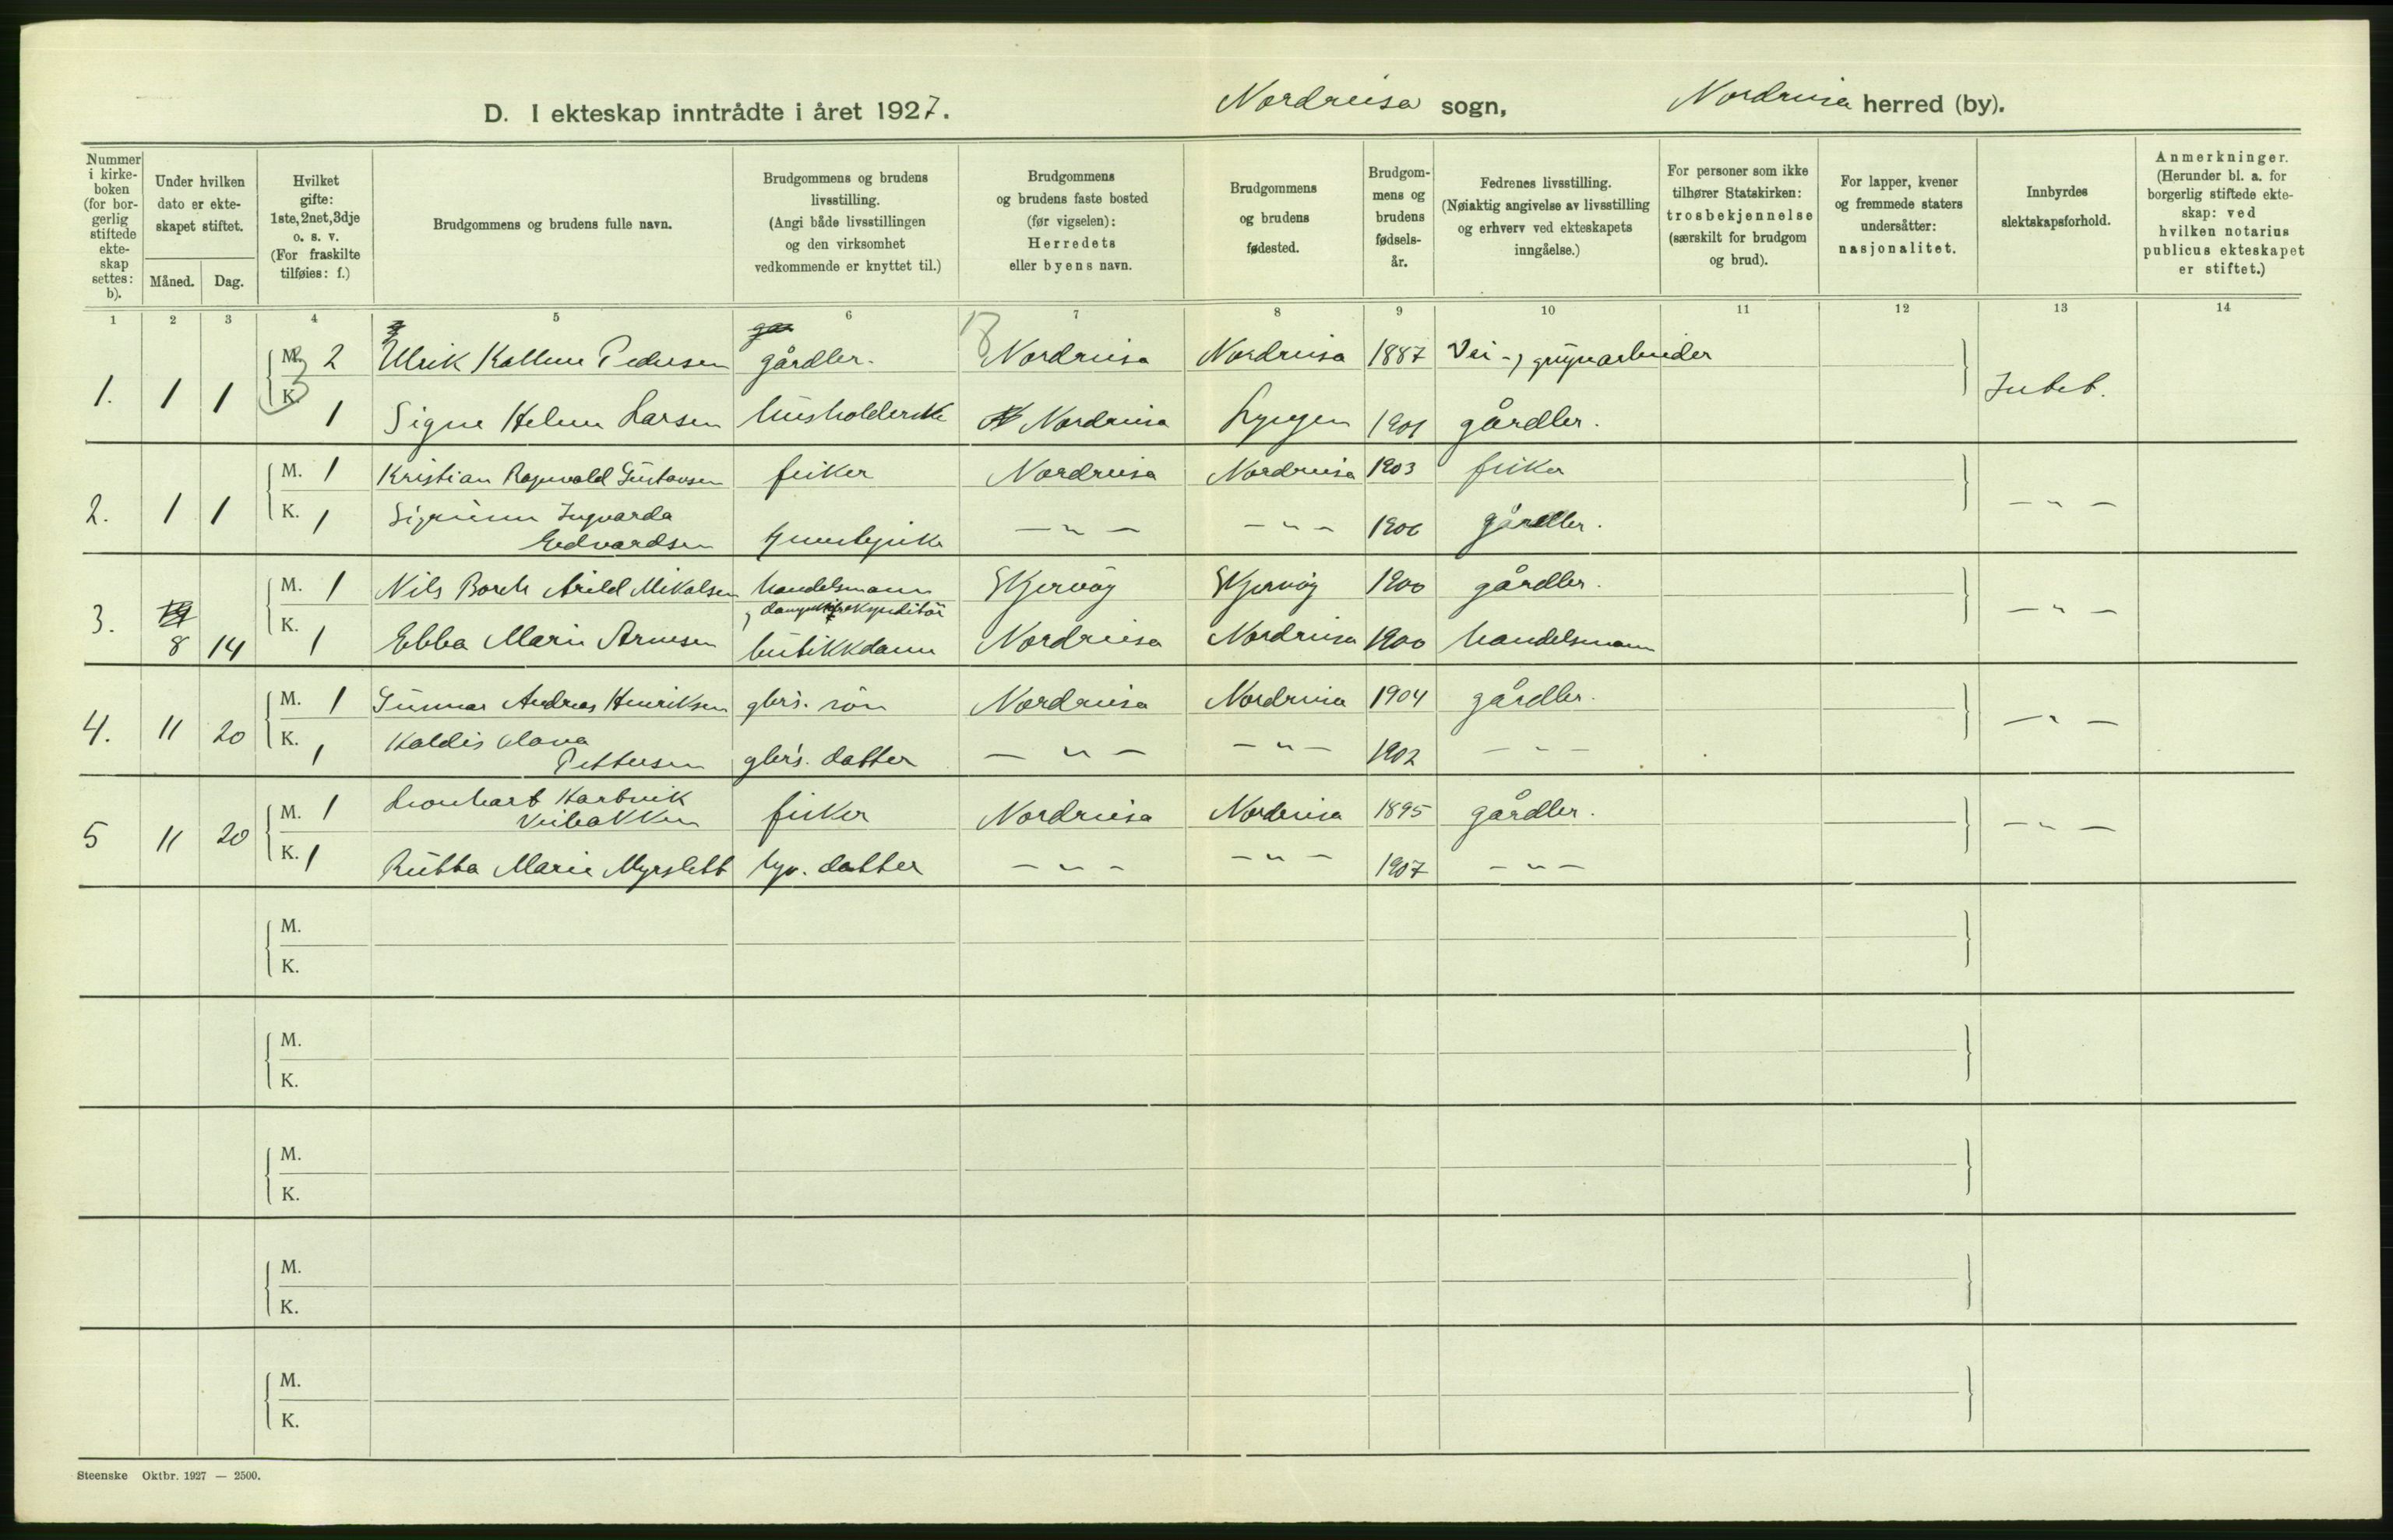 D. I ekteskap inntrådte i året 1927. Nordreisa sogn, Nordreisa herred (by).
Nummer i kirke- boken (for bor- gerlig stiftede ekte- skap settes: b).
Under hvilken dato er ekte- skapet stiftet.
Måned. Dag.
Hvilket gifte: 1ste, 2net, 3dje o. s. v. (For fraskilte tilføies: f.)
Brudgommens og brudens fulle navn.
Brudgommens og brudens livsstilling. (Angi både livsstillingen og den virksomhet vedkommende er knyttet til.)
Brudgommens og brudens faste bosted (før vigselen): Herredets eller byens navn.
Brudgommens og brudens fødested.
Brudgom- mens og brudens fødsels- år.
Fedrenes livsstilling. (Nøiaktig angivelse av livsstilling og erhverv ved ekteskapets inngåelse.)
For personer som ikke tilhører Statskirken: trosbekjennelse (særskilt for brudgom og brud).
For lapper, kvener og fremmede staters undersåtter: nasjonalitet.
Innbyrdes slektskapsforhold.
Anmerkninger. (Herunder bl. a. for borgerlig stiftede ekte- skap: ved hvilken notarius publicus ekteskapet er stiftet.)
1 2 3 4 5 6 7 8 9 10 11 12 13 14
1. 1 1 M. 2 Ulrik Pedersen gårdbr. Nordreisa Nordreisa 1887 Vei-
K. 1 Signe Helene Larsen husholderske Nordreisa Lyngen 1901 gårdbr. Intet.
2. 1 1 M. 1 Kristian Ragnvald Gustavsen fisker Nordreisa Nordreisa 1903 fisker
K. 1 Sigrunn Ingvarda
Edvardsen tjenestepike — " — — " — 1906 gårdbr. — " —
3. 8 14 M. 1 Nils Borch Arild Mikalsen handelsmann Skjervøy Skjervøy 1900 gårdbr. — " —
K. 1 Ebba Marie Arnesen butikkdame Nordreisa Nordreisa 1900 handelsmann
4. 11 20 M. 1 Gunnar Andreas Henriksen gbr's. søn Nordreisa Nordreisa 1904 gårdbr. — " —
K. 1 Haldis
Pettersen gbr's. datter — " — — " — 1902 — " —
5 11 20 M. 1 Leonhart Hartvik
Veibakken fisker Nordreisa Nordreisa 1895 gårdbr. — " —
K. 1 Rutta Marie Myrslett datter — " — — " — 1907 — " —
M.
K.
M.
K.
M.
K.
M.
K.
M.
K.
Steenske Oktbr. 1927 — 2500.